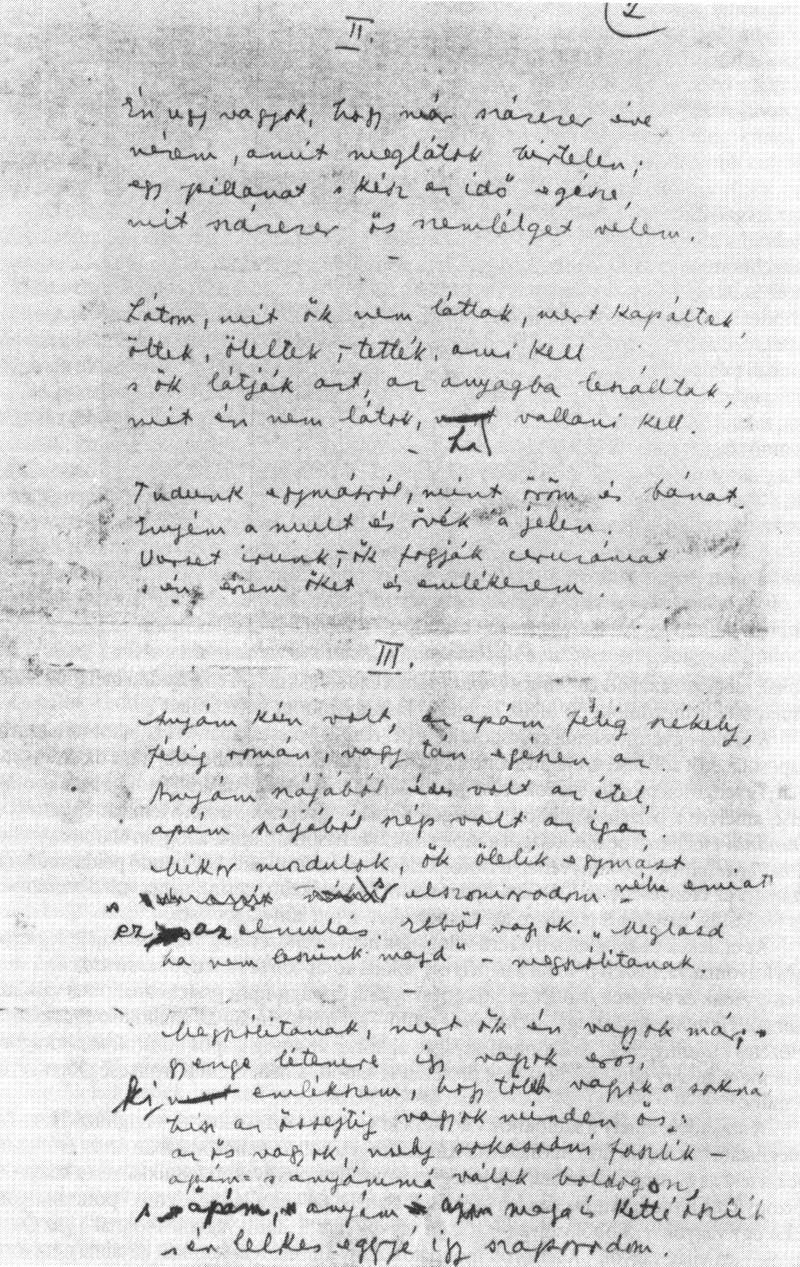 2
II.
Én ugy vagyok, hogy már százezer éve
nézem, amit meglátok hirtelen,
egy pillanat s kész az idő egésze,
mit százezer ős szemlélget velem.
Látom, mit ők nem láttak, mert kapáltak,
öltek, öleltek, – tették, ami kell
s ők látják azt, az anyagba leszálltak,
mit én nem látok, ha vallani kell
Tudunk egymásról, mint öröm és bánat.
Enyém a mult és övék a jelen.
Verset irunk, – ők fogják ceruzámat
s én érzem őket és emlékezem
III.
Anyám kún volt, apám félig székely,
félig román, vagy tán egészen az
Anyám szájából édes volt az étel,
apám szájából szép volt az igaz
Mikor mozdulok, ők ölelik egymást
elszomorodom néha emiatt
ez az elmulás. Ebből vagyok. „Meglásd
ha nem leszünk majd – megszólitanak
Megszólitanak, mert ők én vagyok már, –
gyenge létemre igy vagyok erős,
ki emlékszem, hogy több vagyok a soknál
mert az őssejtig vagyok minden ős,
az ős vagyok, mely sokasodni foszlik –
apám- s anyámmá válok boldogon,
s apám, anyám maga is kettéoszlik
s én lelkes eggyé igy szaporodom.